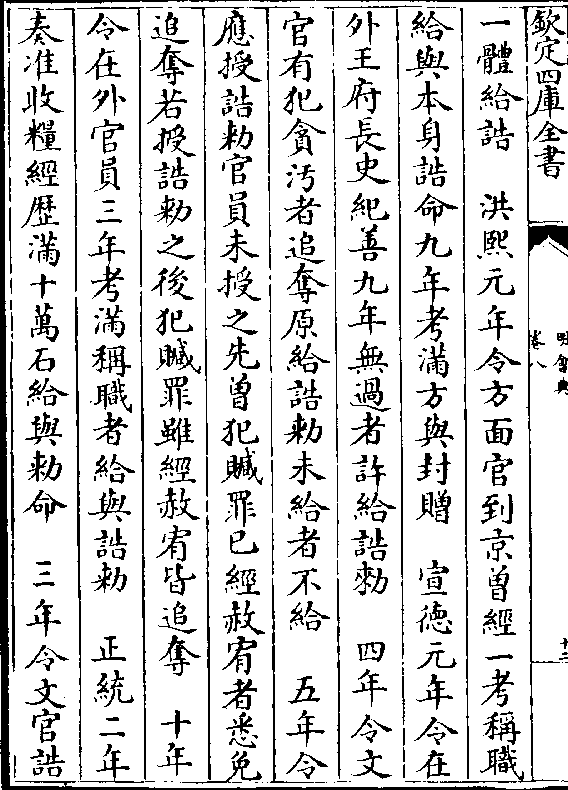 欽定四庫全書
卷八
一體給誥　洪熙元年令方面官到京曾經一考稱職
給與本身誥命九年考滿方與封贈　宣德元年令在
外王府長史紀善九年無過者許給誥勅　四年令文
官有犯貪汚者追奪原給誥勅未給者不給　五年令
應授誥勅官員未授之先曾犯贓罪已經赦宥者悉免
追奪若授誥勅之後犯贓罪雖經赦宥皆追奪　十年
令在外官員三年考滿稱職者給與誥勅　正統二年
奏准收糧經歷滿十萬石給與勅命　三年令文官誥